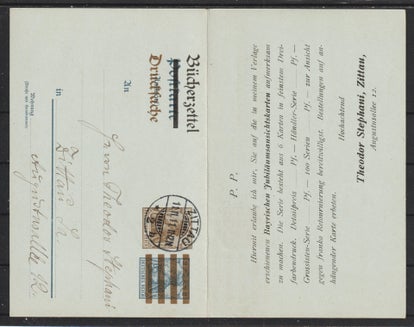 Bücherzettel
Postkarte
Drucksache
An
Herrn Theodor Stephani
in Zittau
Wohnung
ZITTAU
DEUTSCHES REICH
P. P.
Hiermit erlaube ich mir, Sie auf die in meinem Verlage
erschienenen Bayrischen Jubiläumsansichtskarten aufmerksam
zu machen. Die Serie besteht aus 6 Karten in feinstem Drei-
farbendruck. Detailpreis Pf. — Händler-Serie Pf. —
Grossisten-Serie Pf. — 100 Serien Pf. — zur Ansicht
gegen franko Retournierung bereitwilligst. Bestellungen auf an-
hängender Karte erbeten.
Hochachtend
Theodor Stephani, Zittau,
Augustusallee 12.